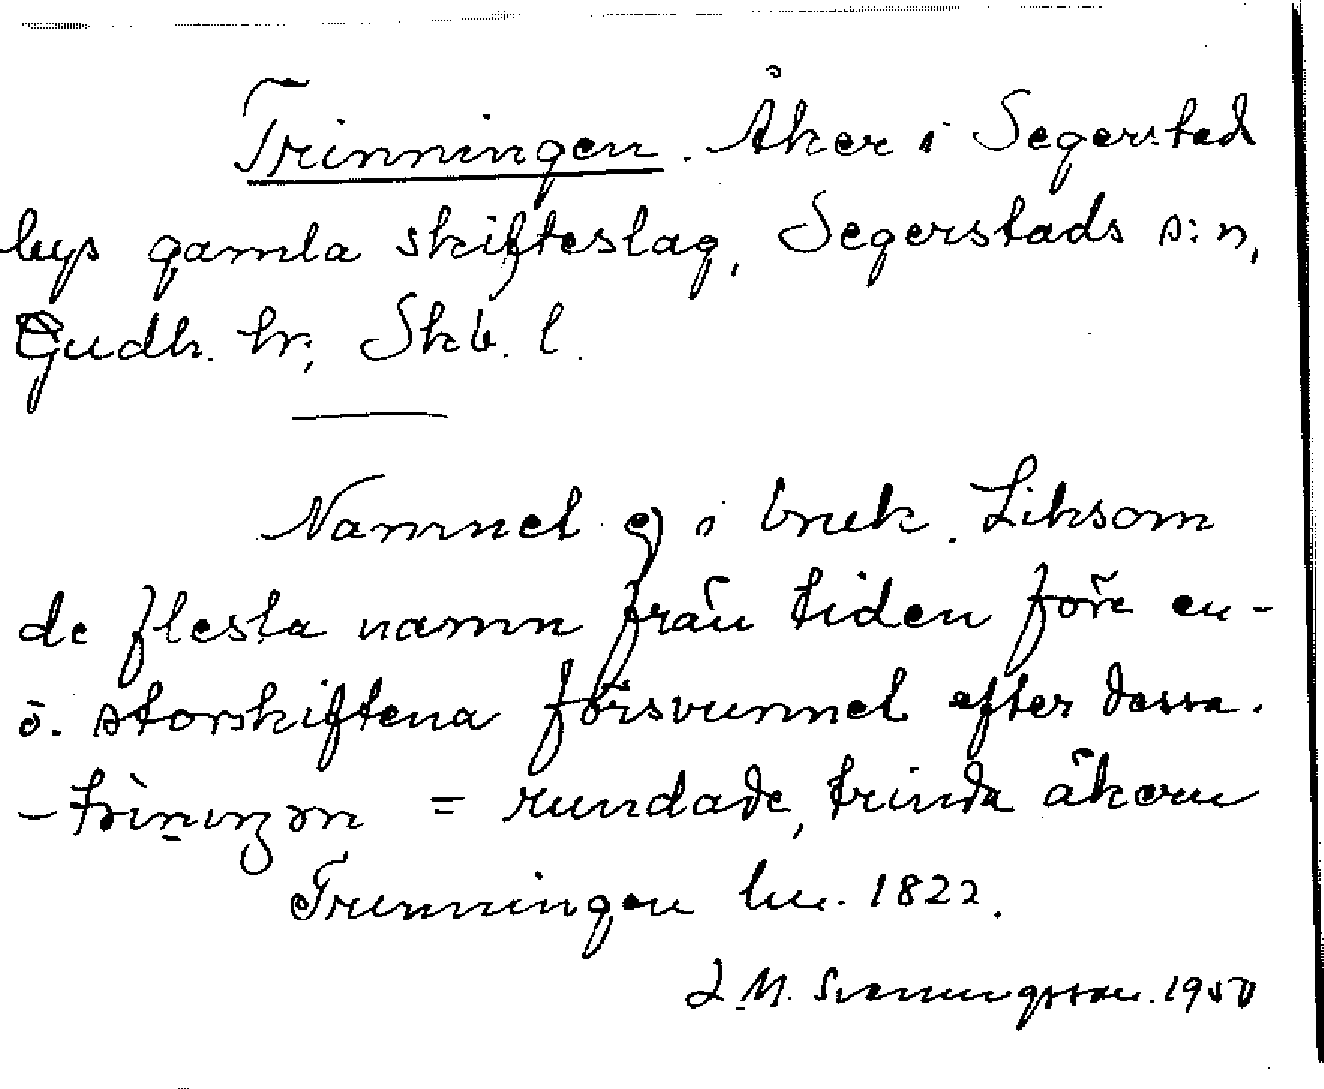 Trinningen. Åker i Segerstad
bys gamla skifteslag, Segerstads s:n,
Gudh. hr, Skb. l.
Namnet ej i bruk. Liksom
de flesta namn från tiden före en-
o. storskiftena försvunnet efter dessa.
= rundade, trinda åkern
Trunningen 1822.
1950